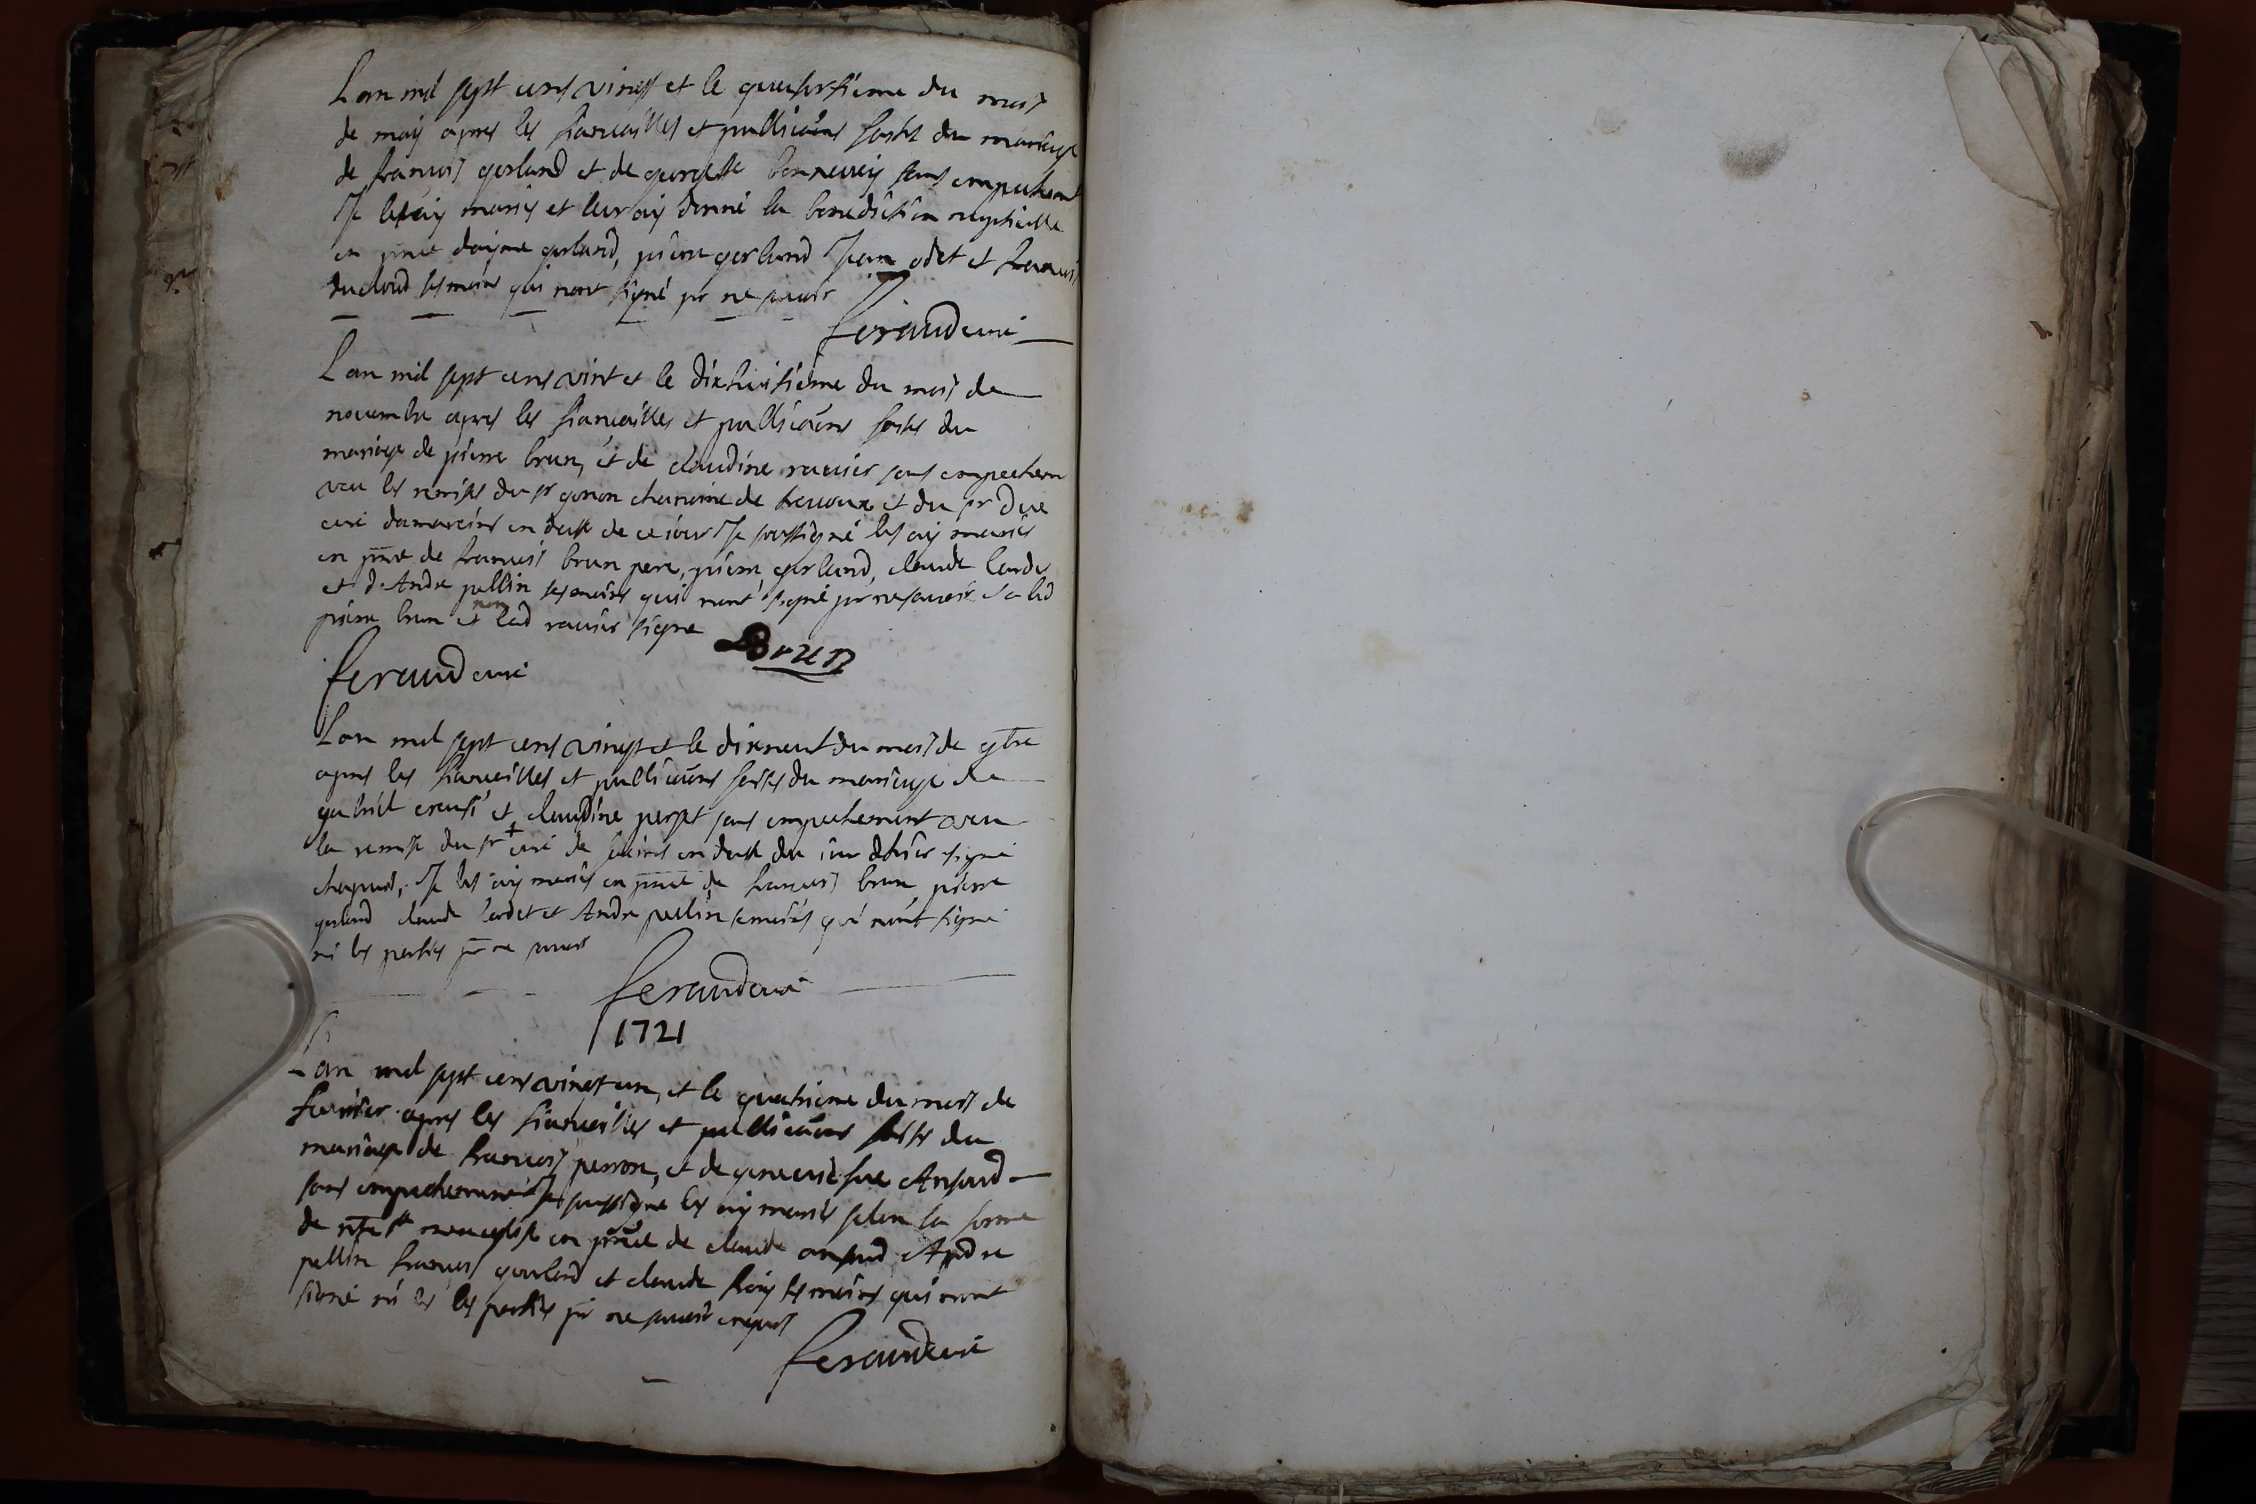 Lan mil sept cens vingt et le quatorsieme du mois
de may apres les fiancailles et publicaōns faites du mariage
de francois gerland et de georgette bonnevey sans empechem
Je les ay mariés et leur ay donné la benediction nuptialle
en pnce gerland, pierre gerland Jean odet et francois
ducloud temoins qui nont signé pr ne scavoir
feraud curé
Lan mil sept cens vint et le dixhuitieme du mois de
novembre apres les fiancailles et publicaōns faites du
mariage de pierre brun, et de claudine ravier sans empechem
veu les remises du sr gonon chanoine de trevoux et du sr Due
curé damareins en datte de ce jour Je soussigné les ay mariés
en pnce de francois brun pere, pierre gerland, claude lardet
et d. Andre pellin temoins qui nont signé pr ne scavoir
pierre brun et non lad ravier signe
Brun
feraud curé
Lan mil sept cens vingt et le dixneuf du mois de 9bre
apres les fiancailles et publicaōns faites du mariage de
gabriel creusé et claudine perset sans empechement veu
la remise du sr + curé de en datte du jour dhier signé
Je les ay mariés en pnce de francois brun, pierre
gerland claude lardet et Andre pellin temoins qui nont signé
ni les parties pr ne scavoir
feraud curé
1721
Lan mil sept cens vingt un, et le quatrieme du mois de
fevrier apres les fiancailles et publicaōns faites du
mariage de francois perron, et de genevie fue Ansaud
sans empechement Je soussigne les ay mariés selon la forme
de nre ste mere eglise en pnce de claude ansaud Andre
pellin francois gerland et claude temoins qui nont
signé ni les les parties pr ne scavoir enquis
feraud curé